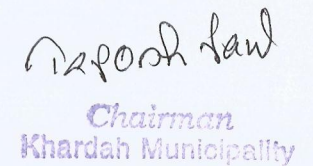 Taposh Paul
Chairman
Khardah Municipality